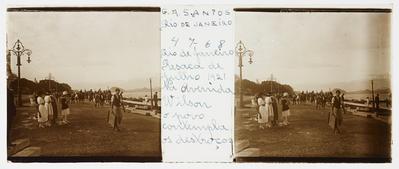 G. A. SANTOS
RIO DE JANEIRO
4 7 6 8
Rio de Janeiro
Resaca de
Julho 1921
Na avenida
Wilson
o povo
contempla
os destroços